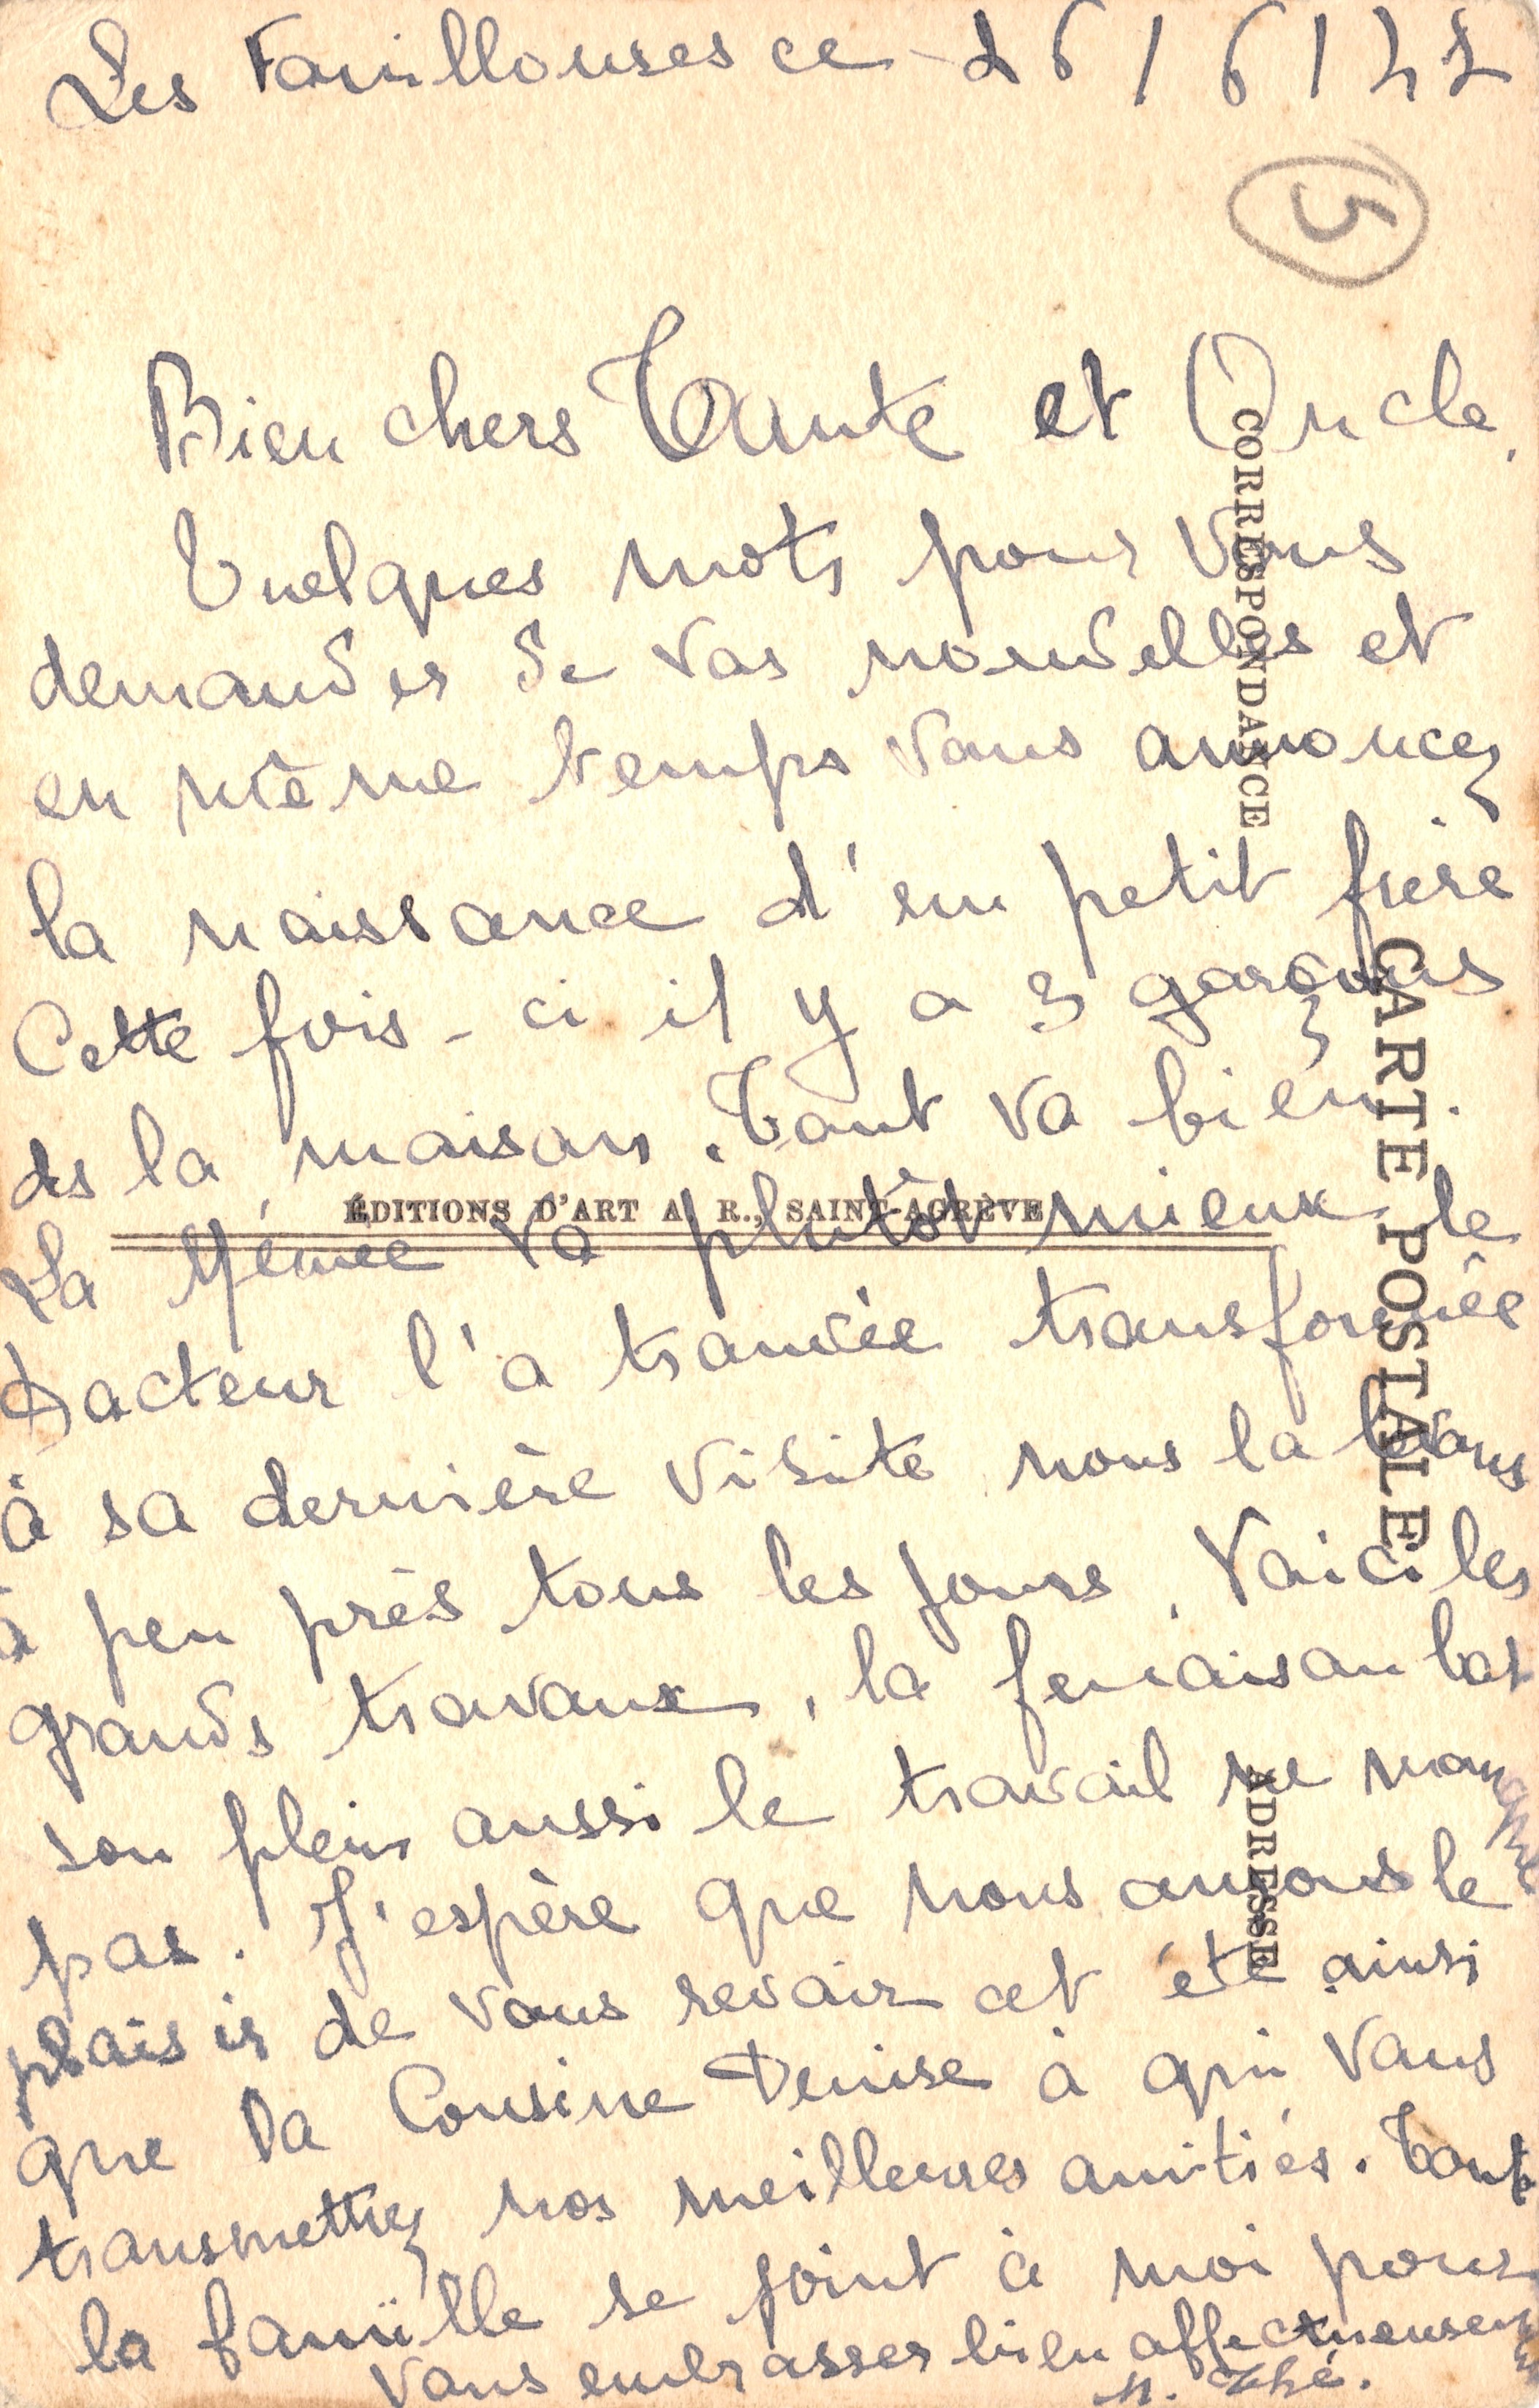 Les Fauillouses ce 26/6/47
5
Bien chers Tante et Oncle.
Quelques mots pour vous
demander de vos nouvelles et
en même temps vous annoncez
la naissance d'un petit frère
Cette fois-ci il y a 3 garçons
ds la maison. Tout va bien.
La Mémée va plutôt mieux le
Docteur l'a trouvée transformée
à sa dernière visite nous la levons
à peu près tous les jours. Voici les
grands travaux, la fenaison bat
son plein aussi le travail ne manque
pas. J'espère que nous aurons le
plaisir de vous revoir cet été ainsi
que la Cousine Denise à qui vous
transmettrez nos meilleures amitiés. Toute
la famille se joint à moi pour
vous embrasser bien affectueusement
CORRESPONDANCE
CARTE POSTALE
ADRESSE
ÉDITIONS D'ART A. R., SAINT-AGRÈVE